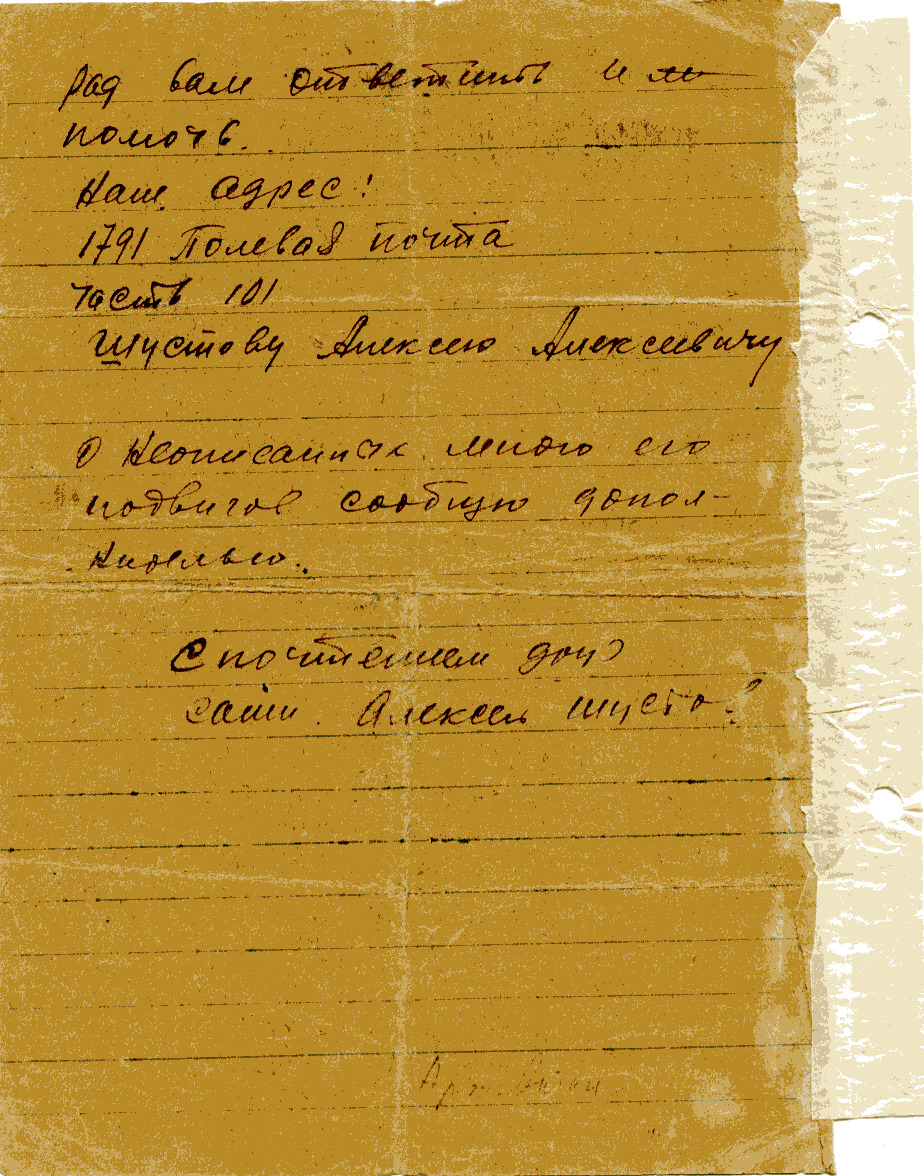 Рад вам ответить и
помочь.
Наш адрес!
1791 Полевая почта
часть 101
Шустову Алексею Алексеевичу
О неописанных много его
подвигов сообщу допол-
нительно.
С почтением друг
Саши. Алексей Шустов